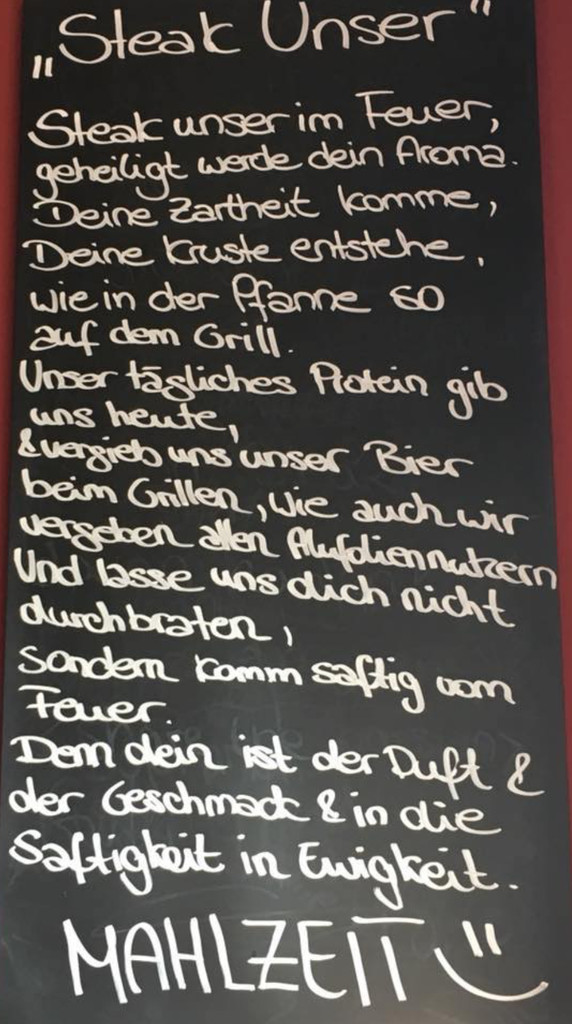 „Steak Unser"
Steak unser im Feuer,
geheiligt werde dein Aroma.
Deine Zartheit komme,
Deine Kruste entstehe,
wie in der Pfanne so
auf dem Grill.
Unser tägliches Protein gib
uns heute,
& vergieb uns unser Bier
beim Grillen, wie auch wir
vergeben allen Alufoliennutzern
Und lasse uns dich nicht
durchbraten,
sondern komm saftig vom
Feuer.
Denn dein ist der Duft &
der Geschmack & in die
Saftigkeit in Ewigkeit.
MAHLZEIT